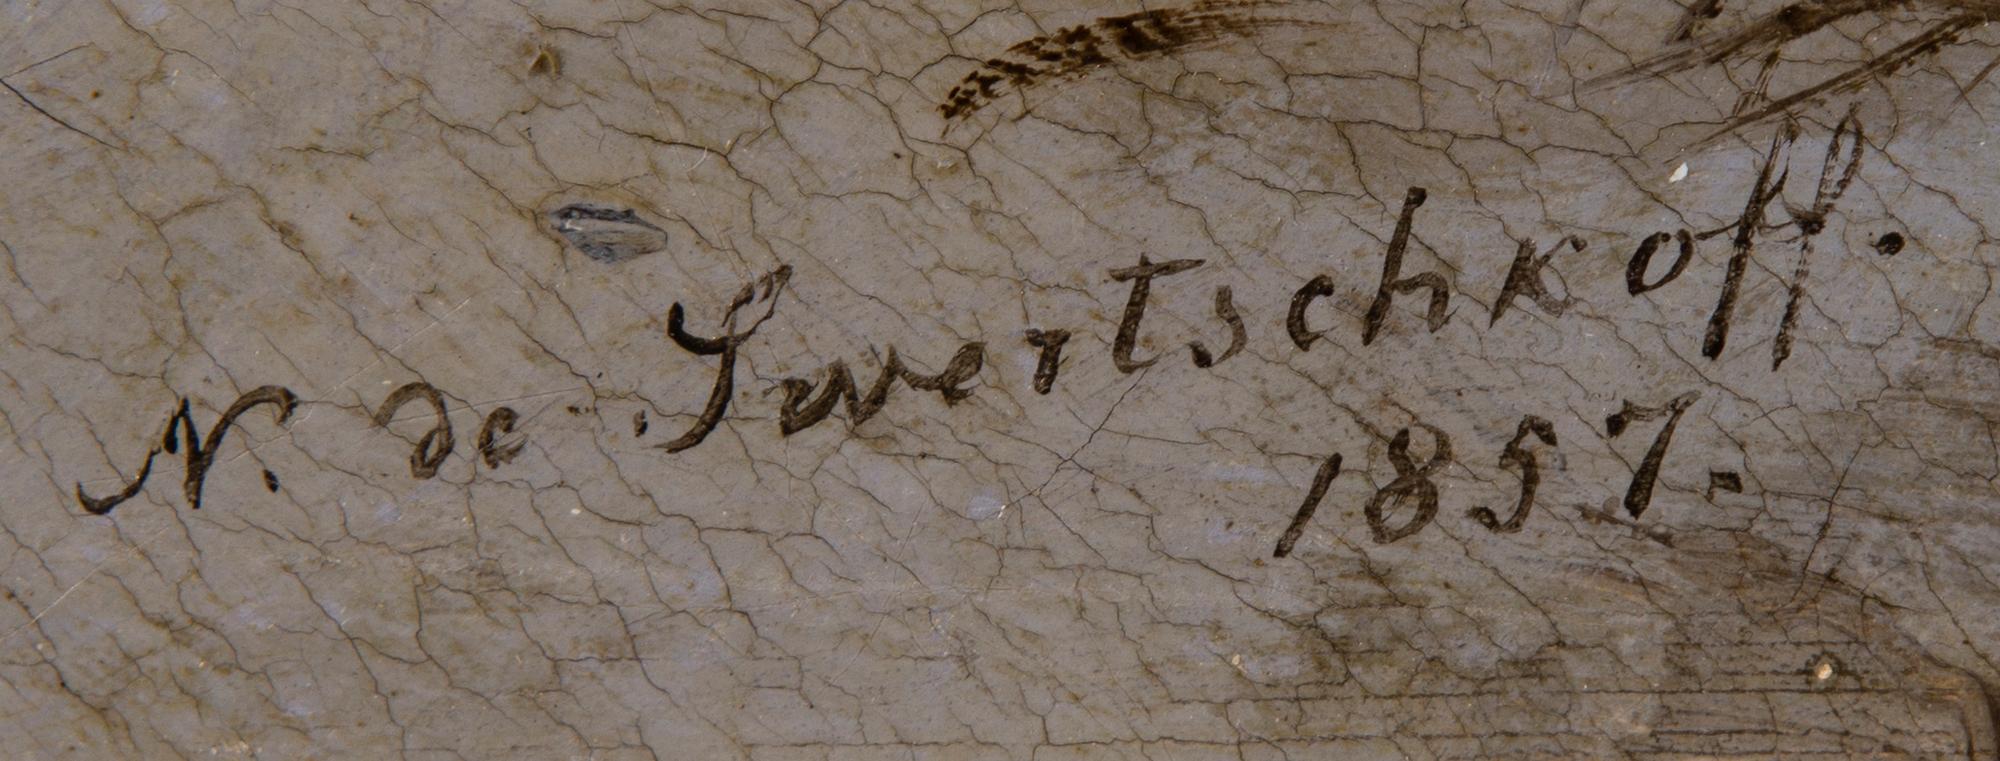 N. de Swertschkoff.
1857.